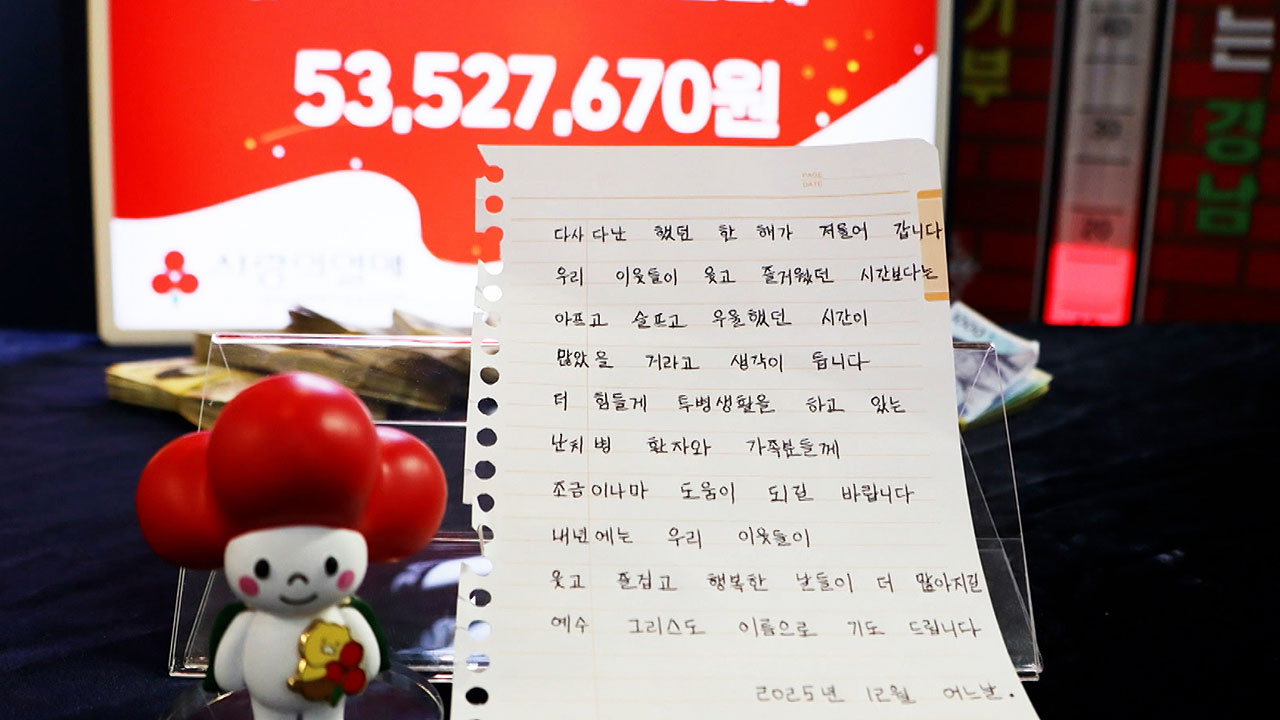 53,527,670원
사랑의열매
기부
는
경남
40
30
20
PAGE
DATE
다사다난 했던 한 해가 저물어 갑니다
우리 이웃들이 웃고 즐거웠던 시간보다는
아프고 슬프고 우울했던 시간이
많았을 거라고 생각이 듭니다
더 힘들게 투병생활을 하고 있는
난치병 환자와 가족분들께
조금이나마 도움이 되길 바랍니다
내년에는 우리 이웃들이
웃고 즐겁고 행복한 날들이 더 많아지길
예수 그리스도 이름으로 기도 드립니다
2025년 12월 어느날.